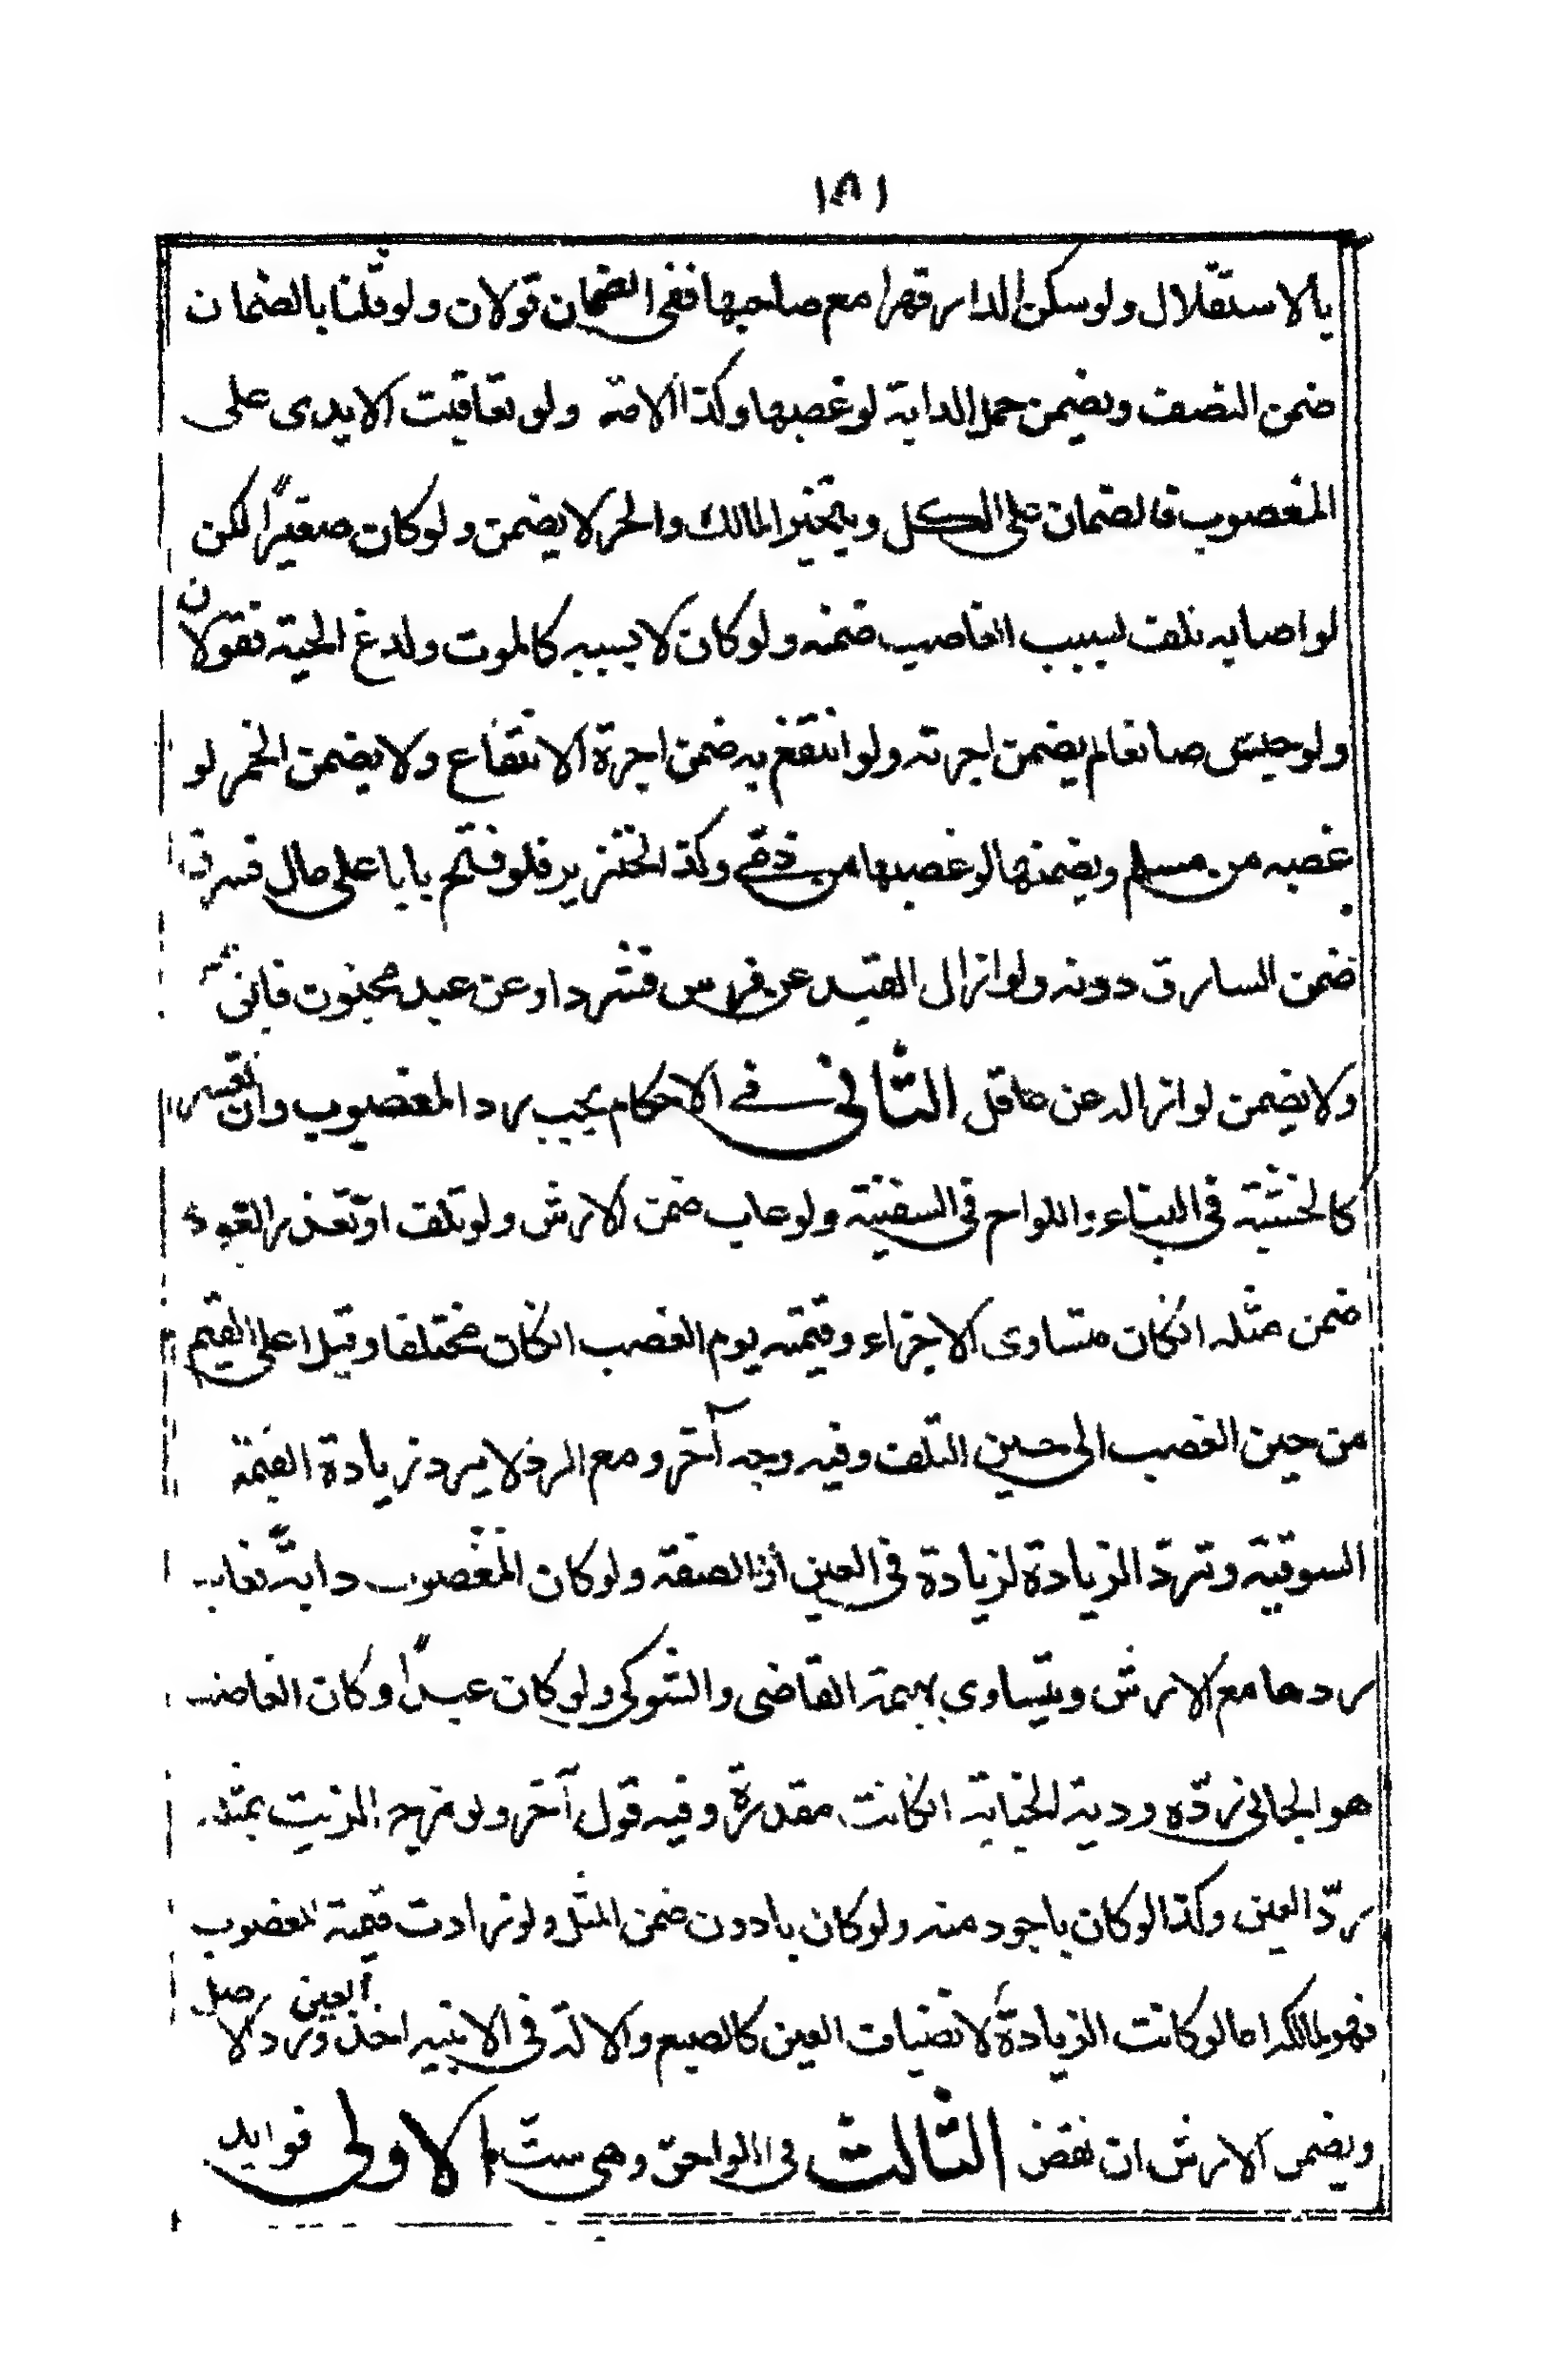 ١٥١
بالاستقلال ولو سكن الدار قهرا مع صاحبها ففى الضمان قولان ولو قلنا بالضمان
ضمن النصف ويضمن حمل الدابة لو غصبها وكذا الامة ولو تعاقبت الايدى على
المغصوب فالضمان على الكل ويتخير المالك والحر لا يضمن ولو كان صغيراً لكن
لو اصابه تلف بسبب الغاصب ضمنه ولو كان لا بسببه كالموت ولدغ الحية فقولان
ولو حبس صانعا لم يضمن اجرته ولو انتفع به ضمن اجرة الانتفاع ولا يضمن الخمر لو
غصبه من مسلم ويضمنها لو غصبها من ذمّى وكذا الخنزير فلو فتح بابا على مال فسرق
ضمن السارق دونه ولو ازال القيد عن فرس فشرد او عن عبد مجنون فابق
ولا يضمن لو ازاله عن عاقل الثانى فى الاحكام يجب رد المغصوب وان تعسر
كالخشبة فى البناء واللواح فى السفينة ولو عاب ضمن الارش ولو تلف او تعذر العود
ضمن مثله انكان متساوى الاجزاء وقيمته يوم الغصب انكان مختلفا وقيل اعلى القيم
من حين الغصب الى حين التلف وفيه وجه آخر ومع الرد لا يرد زيادة القيمة
السوقية وترد الزيادة لزيادة فى العين او الصفة ولو كان المغصوب دابة فعابت
ردها مع الارش ويتساوى بهيمة القاضى والشوكى ولو كان عبداً وكان الغاصب
هو الجانى ردّه ودية الجناية انكانت مقدرة وفيه قول آخر ولو مزج الزيت بمثله
ردّ العين وكذا لو كان باجود منه ولو كان بادون ضمن المثل ولو زادت قيمة المغصوب
فهو لمالكه اما لو كانت الزيادة لانضياف العين كالصبع والالة فى الابنية اخذ العين ورد الاصل
ويضمن الارش ان نقض الثالث فى اللواحق وهى ستّ الاولى فوايد